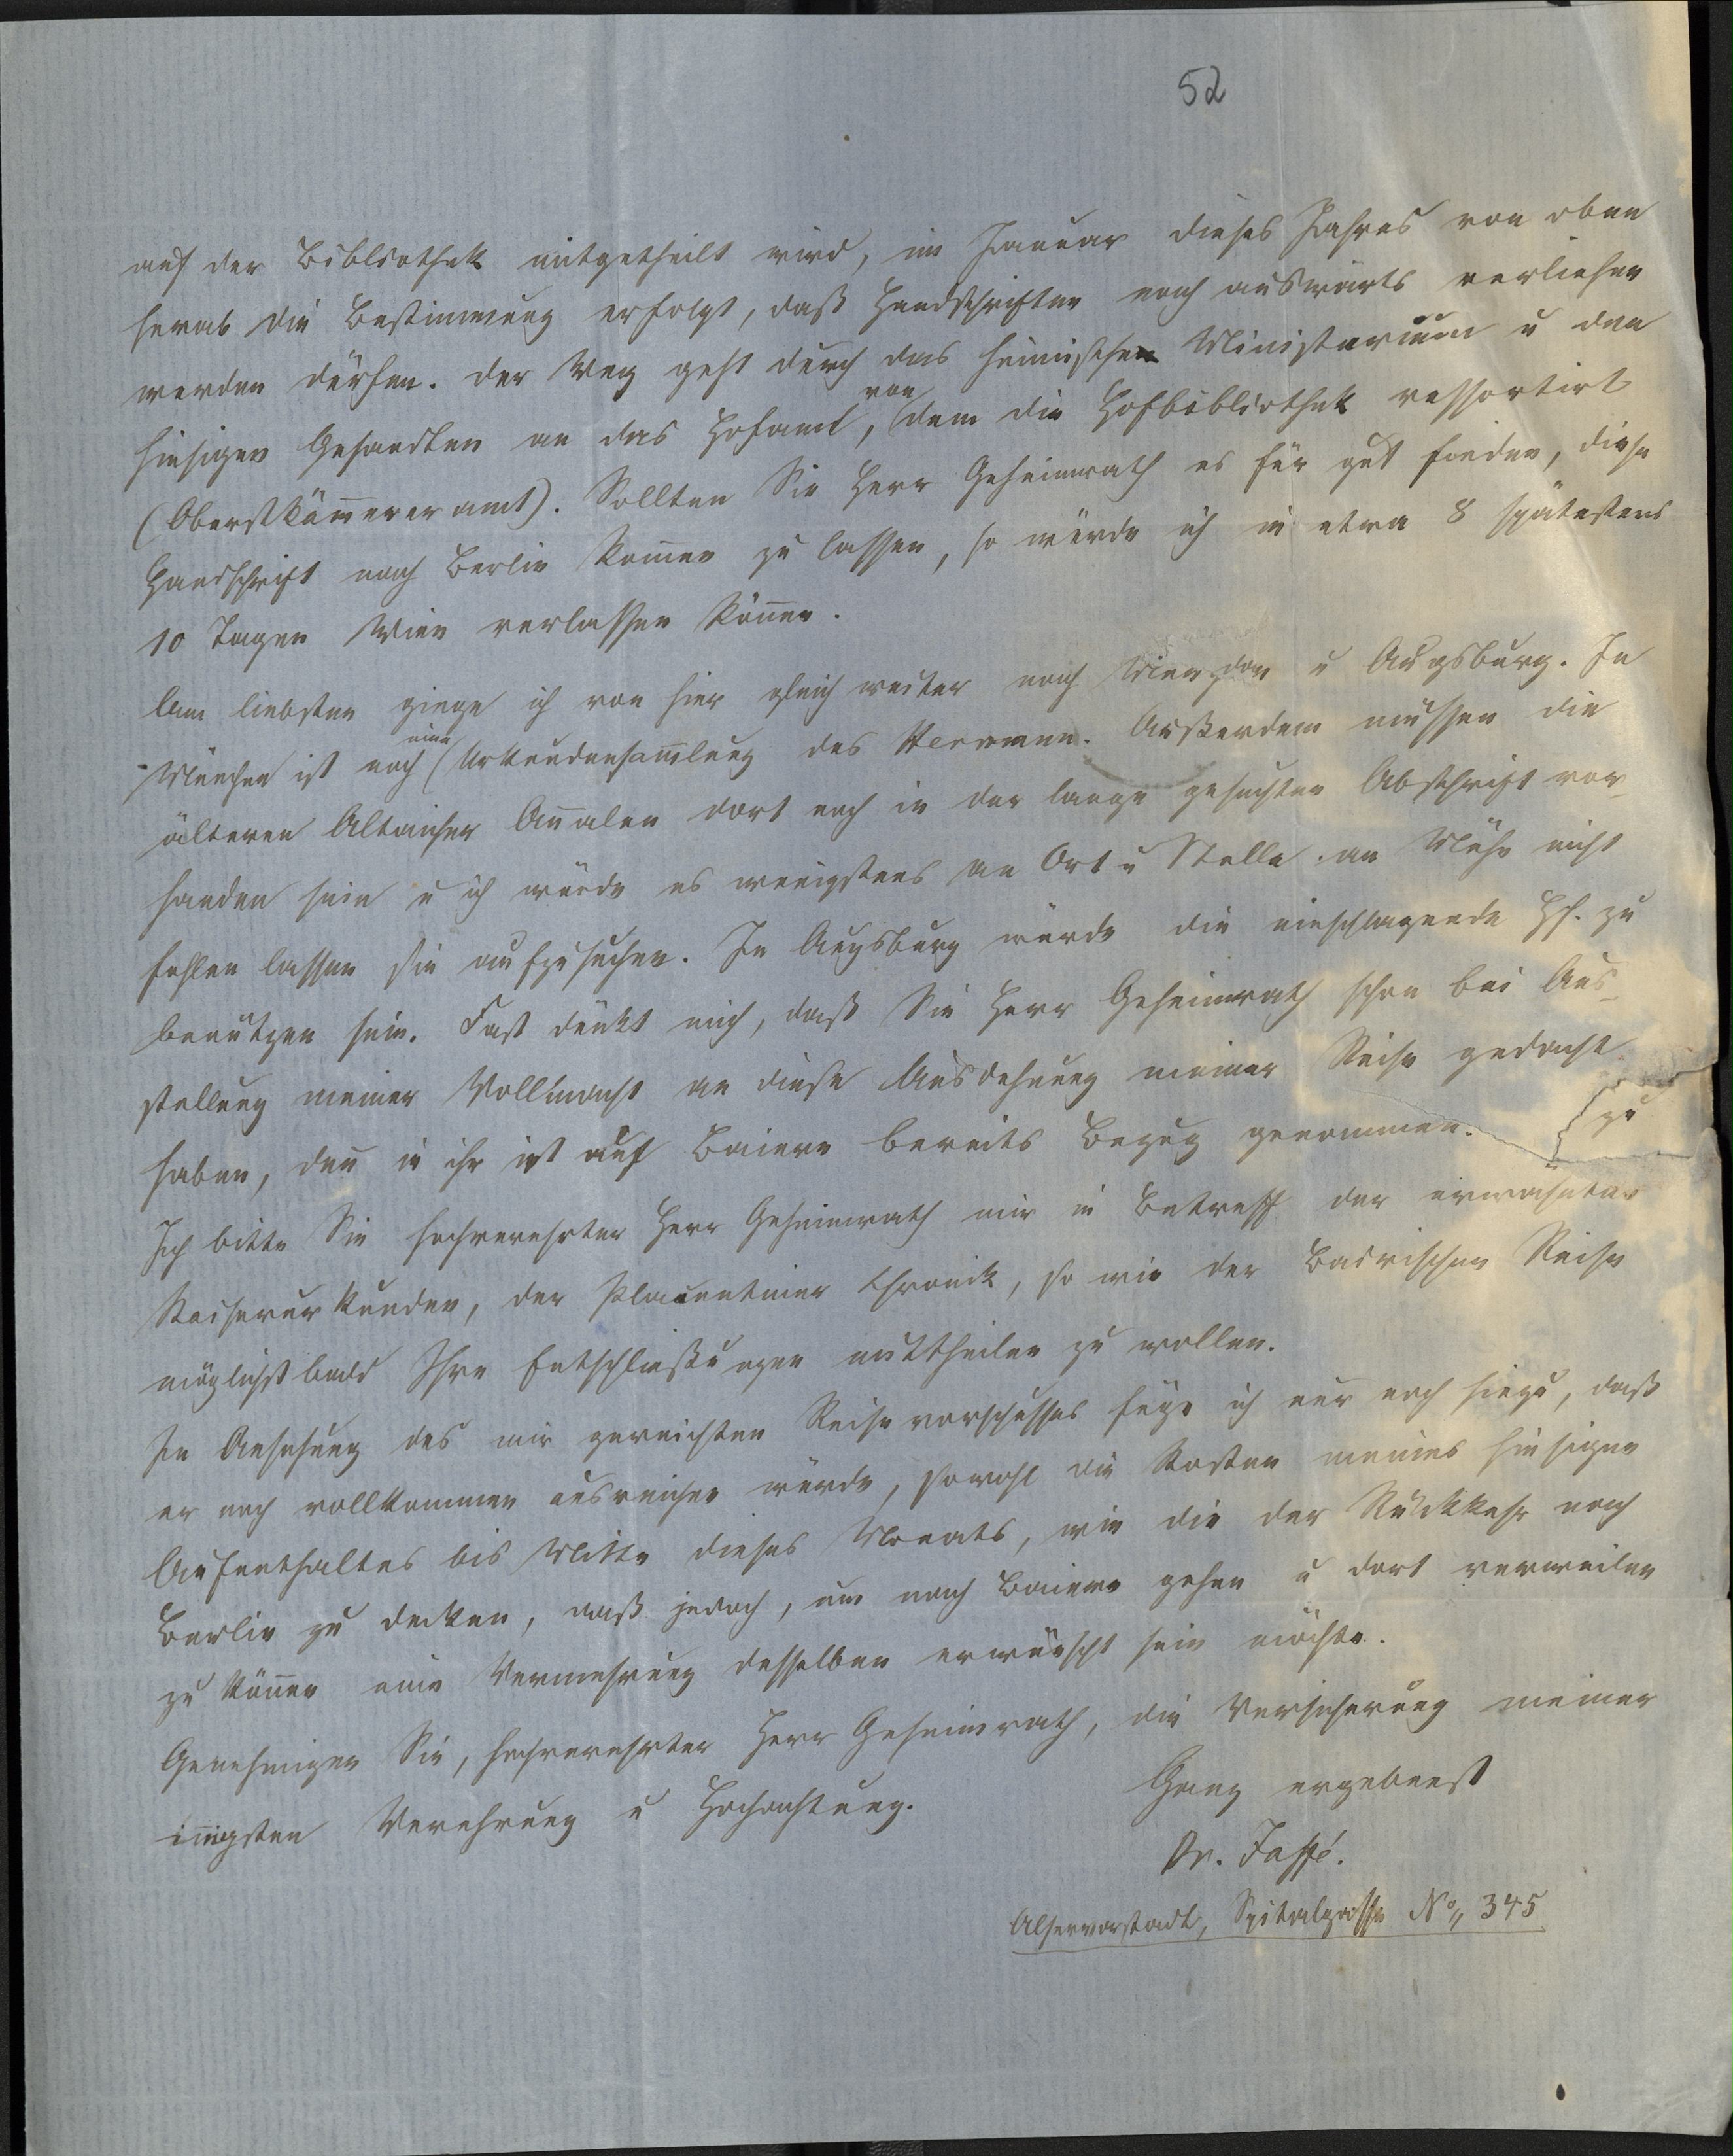 52
auf der Bibliothek mitgetheilt wird, im Januar dieses Jahres von oben
herab die Bestimmung erfolgt, daß Handschriften nach auswärts verliehen
werden dürfen. Der Weg geht durch das heimische Ministerium u den
hiesigen Gesandten an das Hofamt, von dem die Hofbibliothek ressortirt
(Oberstkämereramt). Sollten Sie Herr Geheimrath es für gut finden, diese
Handschrift nach Berlin komen zu lassen, so würde ich in etwa 8 spätestens
10 Tagen Wien verlassen könen.
Am liebsten ginge ich von hier gleich weiter nach München u Augsburg. In
München ist noch eine Urkundensamlung des Hermann. Außerdem müssen die
älteren Altaicher Analen dort noch in der lange gesuchten Abschrift vor
handen sein u ich würde es wenigstens an Ort u Stelle an Mühe nicht
fehlen lassen sie aufzusuchen. In Augsburg würde die einschlagende Hs. zu
benutzen sein. Fast dünkt mich, daß Sie Herr Geheimrath schon bei Aus-
stellung meiner Vollmacht an diese Ausdehnung meiner Reise gedacht
zu
haben, den in ihr ist auf Baiern bereits Bezug genommen.
Ich bitte Sie hochverehrter Herr Geheimrath mir in Betreff der erwähnten
Kaiserurkunden, der Placentiner Chronik, so wie der Bairischen Reise
möglichst bald Ihre Entschließungen mittheilen zu wollen.
In Ansehung des mir gereichten Reisevorschusses füge ich nur noch hinzu, daß
er noch vollkommen ausreichen würde, sowohl die Kosten meines hiesigen
Aufenthaltes bis Mitte dieses Monats, wie die der Rückkehr nach
Berlin zu decken, daß jedoch, um nach Baiern gehen u dort verweilen
zu könen eine Vermehrung desselben erwünscht sein möchte.
Genehmigen Sie, hochverehrter Herr Geheimrath, die Versicherung meiner
innigsten Verehrung u Hochachtung.
Ganz ergebenst
Dr. Jaffé.
Alservorstadt, Spitalgasse No,, 345